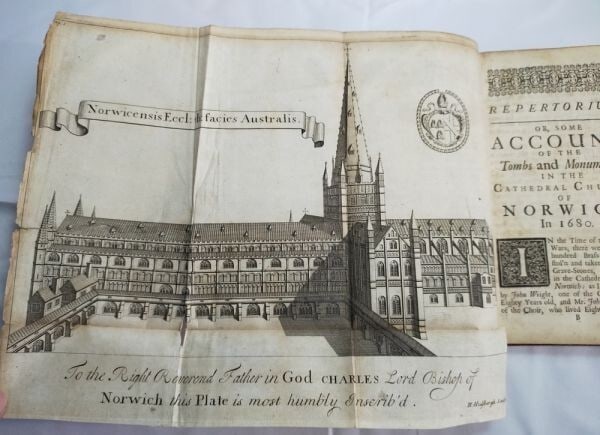 Norwicensis Eccl: facies Australis.
To the Right Reverend Father in God CHARLES Lord Bishop of
Norwich this Plate is most humbly Inscrib'd.
REPERTORIU
OR, SOME
ACCOUN
OF THE
Tombs and Monum
IN THE
CATHEDRAL CHU
OF
NORWIC
In 1680.
IN the Time of
Wars, there we
hundred Brass
stol'n and taken
Grave-Stones,
in the Cathedr
Norwich: as I
by John Wright, one of the C
Eighty Years old, and Mr. Joh
of the Choir, who lived Eigh
B